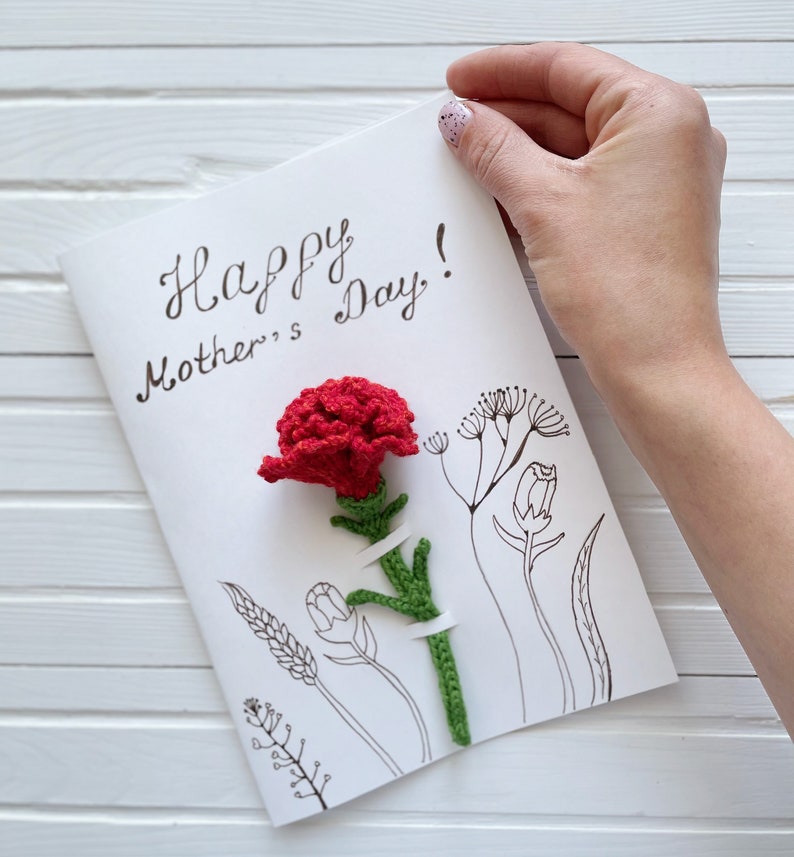 Happy
Mother's Day!